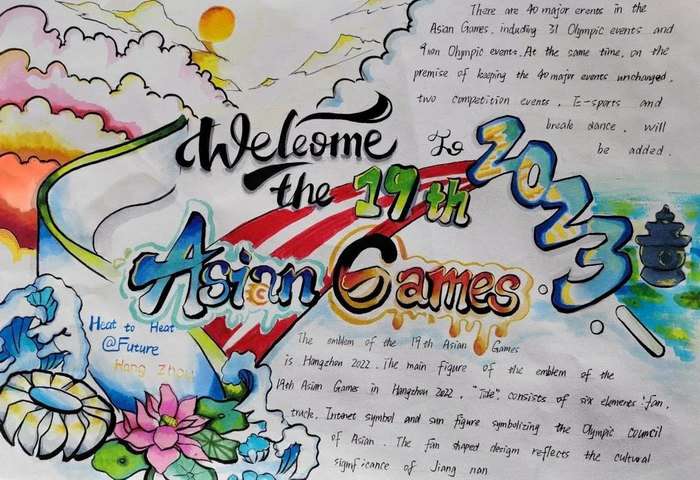 There are 40 major erents in the
Asian Games, including 31 Olympic events and
9 non Olympic events. At the same time, on the
premise of keeping the 40 major events unchanged,
two competition events, E-sports and
breale dance, will
be added.
Welcome To 2023
the 19th
Asian Games
Heat to Heat
@Future
Hang Zhou
The emblem of the 19th Asian Games
is Hangzhou 2022. The main figure of the emblem of the
19th Asian Games in Hangzhou 2022, "Tide", consists of six elements: fan,
track, Intenet symbol and sun figure symbolizing the Olympic council
of Asian. The fan shaped design reflects the cultural
significance of Jiang nan